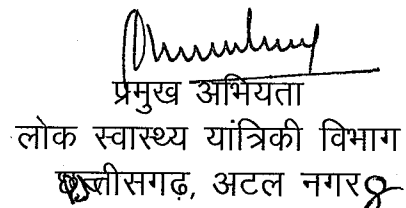 प्रमुख अभियता
लोक स्वास्थ्य यांत्रिकी विभाग
छत्तीसगढ़, अटल नगर